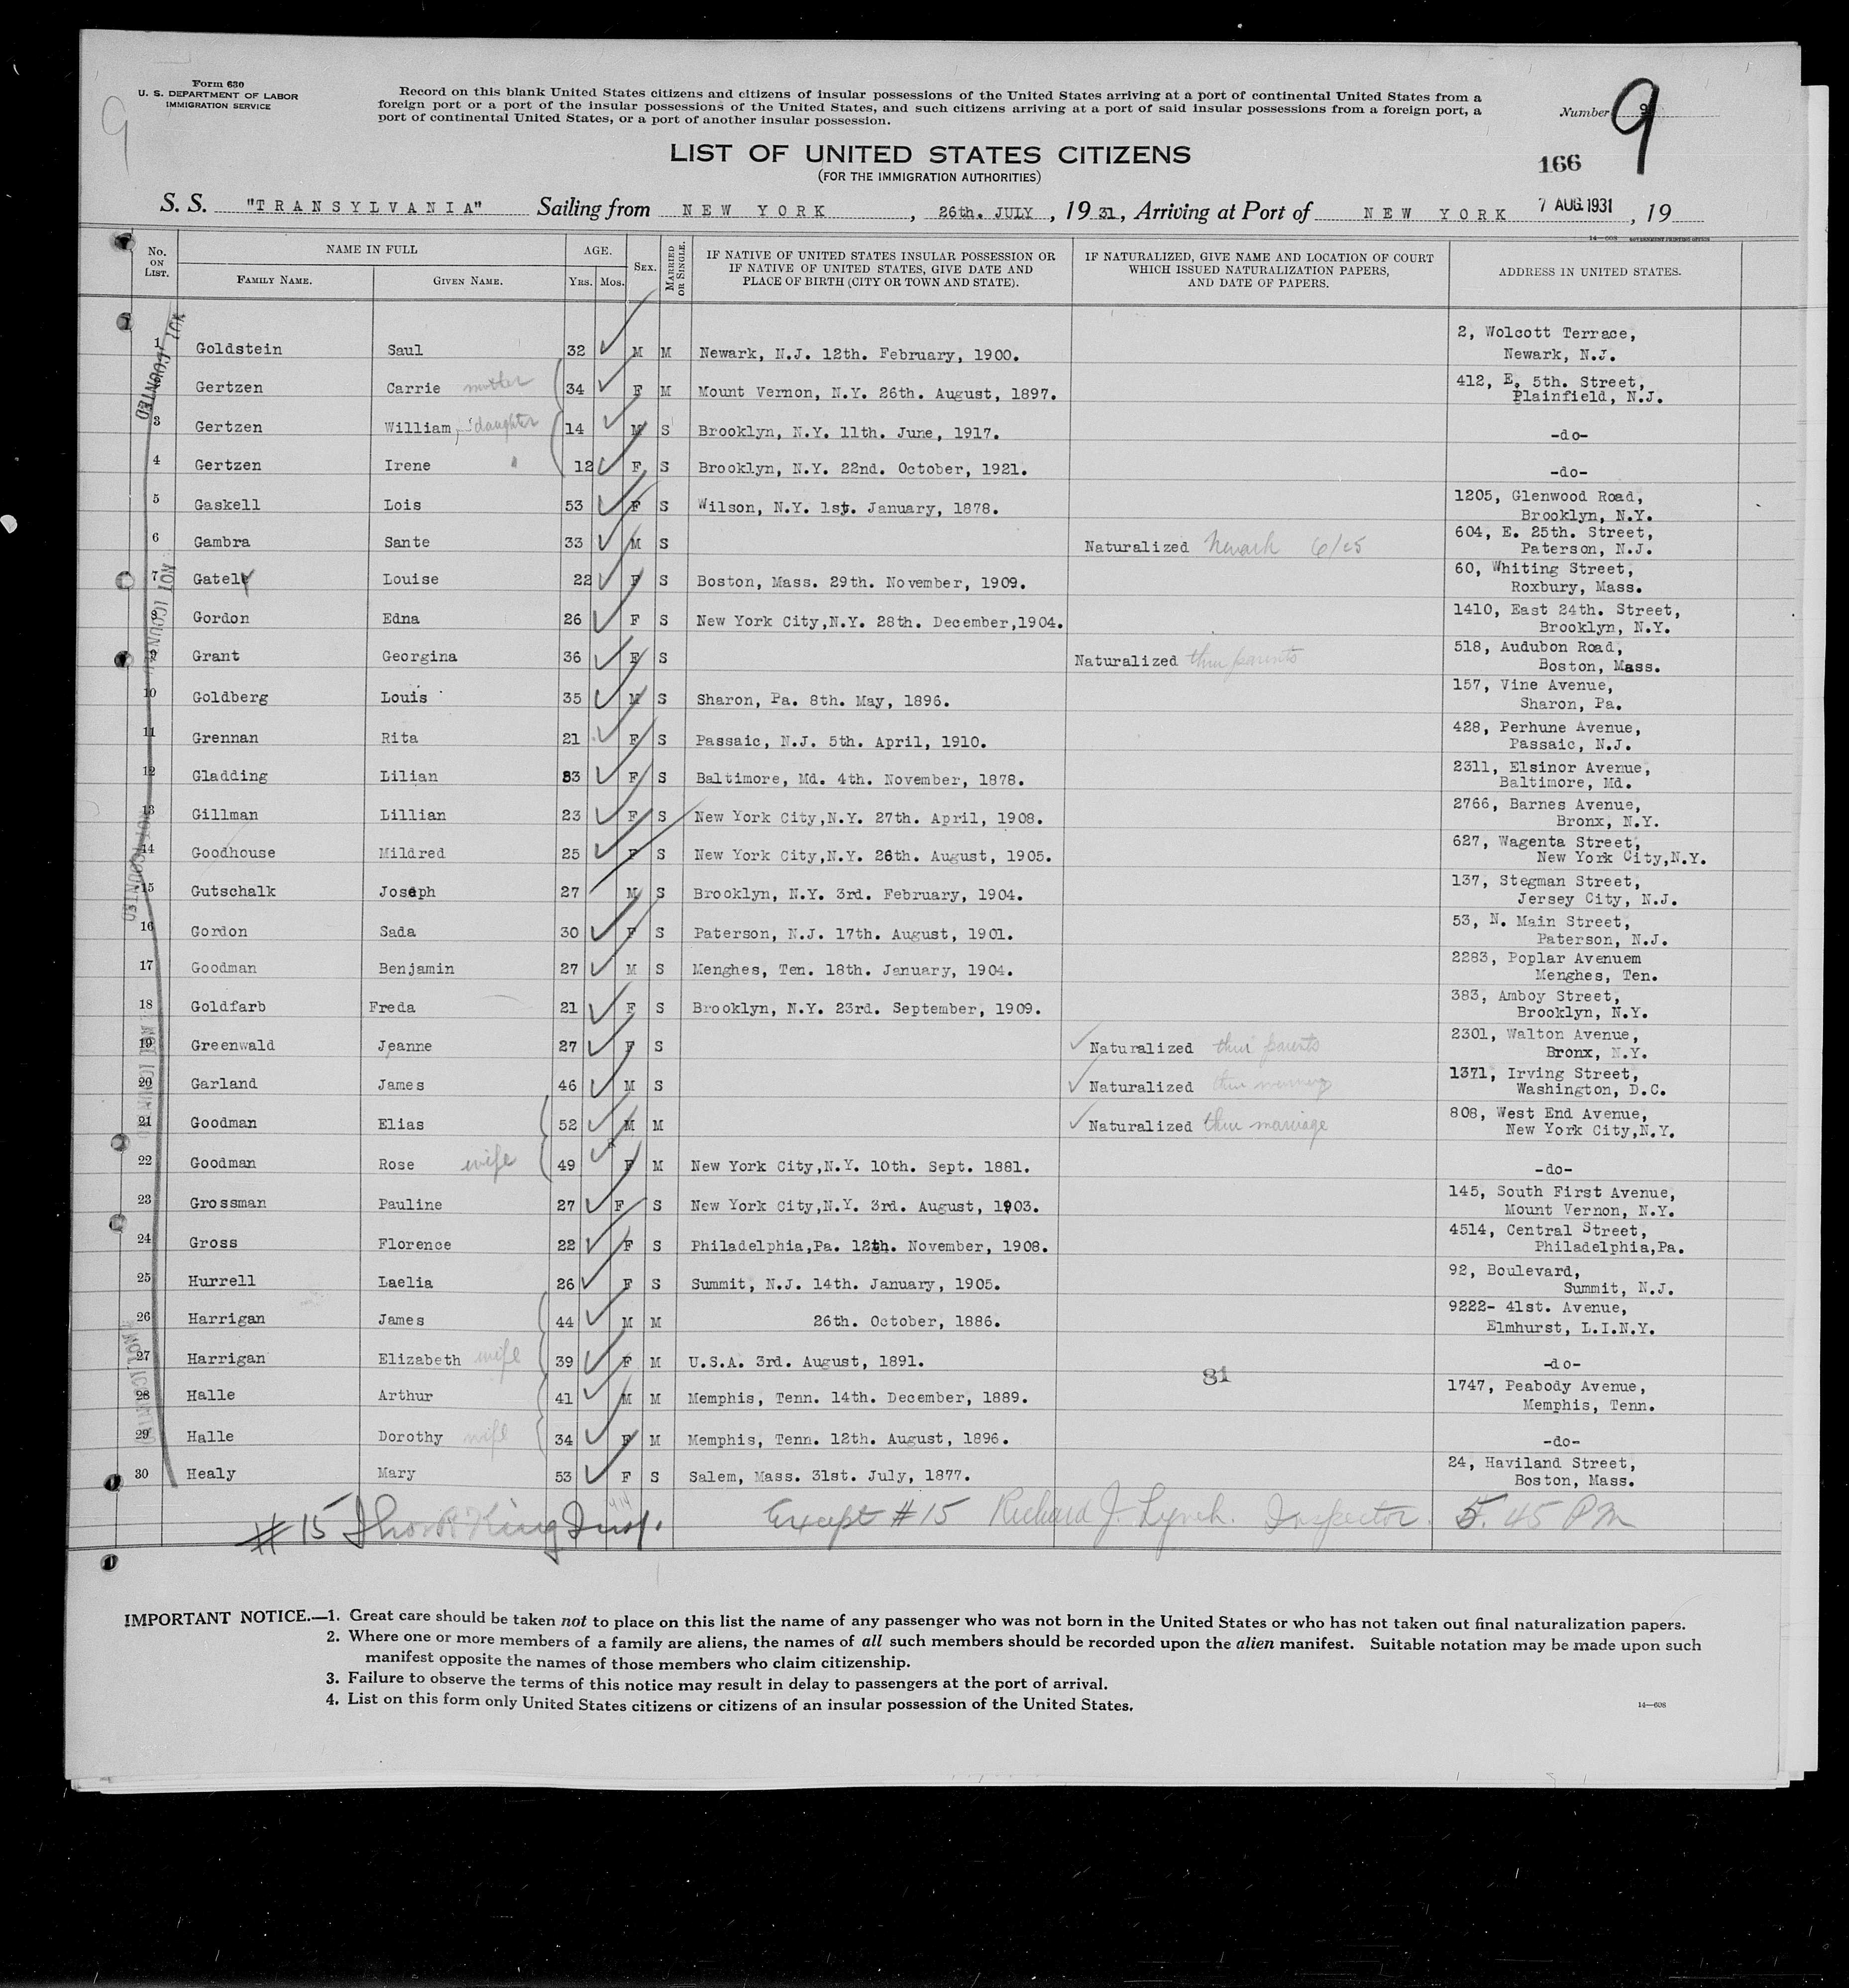 Form 630
U. S. DEPARTMENT OF LABOR
IMMIGRATION SERVICE
9
Record on this blank United States citizens and citizens of insular possessions of the United States arriving at a port of continental United States from a
foreign port or a port of the insular possessions of the United States, and such citizens arriving at a port of said insular possessions from a foreign port, a
port of continental United States, or a port of another insular possession.
Number 9
9
LIST OF UNITED STATES CITIZENS
(FOR THE IMMIGRATION AUTHORITIES)
166
S. S. "TRANSYLVANIA" Sailing from NEW YORK, 26th. JULY, 1931, Arriving at Port of NEW YORK 7 AUG 1931, 19
14—608 GOVERNMENT PRINTING OFFICE
No. ON LIST. NAME IN FULL FAMILY NAME. GIVEN NAME. AGE. YRS. MOS. SEX. MARRIED OR SINGLE. IF NATIVE OF UNITED STATES INSULAR POSSESSION OR IF NATIVE OF UNITED STATES, GIVE DATE AND PLACE OF BIRTH (CITY OR TOWN AND STATE). IF NATURALIZED, GIVE NAME AND LOCATION OF COURT WHICH ISSUED NATURALIZATION PAPERS, AND DATE OF PAPERS. ADDRESS IN UNITED STATES.
1 Goldstein Saul 32 M M Newark, N.J. 12th. February, 1900. 2, Wolcott Terrace, Newark, N.J.
2 Gertzen Carrie mother 34 F M Mount Vernon, N.Y. 26th. August, 1897. 412, E. 5th. Street, Plainfield, N.J.
3 Gertzen William, daughter 14 M S Brooklyn, N.Y. 11th. June, 1917. -do-
4 Gertzen Irene " 12 F S Brooklyn, N.Y. 22nd. October, 1921. -do-
5 Gaskell Lois 53 F S Wilson, N.Y. 1st. January, 1878. 1205, Glenwood Road, Brooklyn, N.Y.
6 Gambra Sante 33 M S Naturalized Newark 6/25 604, E. 25th. Street, Paterson, N.J.
7 Gately Louise 22 F S Boston, Mass. 29th. November, 1909. 60, Whiting Street, Roxbury, Mass.
8 Gordon Edna 26 F S New York City,N.Y. 28th. December,1904. 1410, East 24th. Street, Brooklyn, N.Y.
9 Grant Georgina 36 F S Naturalized thru parents 518, Audubon Road, Boston, Mass.
10 Goldberg Louis 35 M S Sharon, Pa. 8th. May, 1896. 157, Vine Avenue, Sharon, Pa.
11 Grennan Rita 21 F S Passaic, N.J. 5th. April, 1910. 428, Perhune Avenue, Passaic, N.J.
12 Gladding Lilian 53 F S Baltimore, Md. 4th. November, 1878. 2311, Elsinor Avenue, Baltimore, Md.
13 Gillman Lillian 23 F S New York City,N.Y. 27th. April, 1908. 2766, Barnes Avenue, Bronx, N.Y.
14 Goodhouse Mildred 25 F S New York City,N.Y. 26th. August, 1905. 627, Wagenta Street, New York City,N.Y.
15 Gutschalk Joseph 27 M S Brooklyn, N.Y. 3rd. February, 1904. 137, Stegman Street, Jersey City, N.J.
16 Gordon Sada 30 F S Paterson, N.J. 17th. August, 1901. 53, N. Main Street, Paterson, N.J.
17 Goodman Benjamin 27 M S Menghes, Ten. 18th. January, 1904. 2283, Poplar Avenuem Menghes, Ten.
18 Goldfarb Freda 21 F S Brooklyn, N.Y. 23rd. September, 1909. 383, Amboy Street, Brooklyn, N.Y.
19 Greenwald Jeanne 27 F S Naturalized thru parents 2301, Walton Avenue, Bronx, N.Y.
20 Garland James 46 M S Naturalized thru 1371, Irving Street, Washington, D.C.
21 Goodman Elias 52 M M Naturalized thru marriage 808, West End Avenue, New York City,N.Y.
22 Goodman Rose wife 49 F M New York City,N.Y. 10th. Sept. 1881. -do-
23 Grossman Pauline 27 F S New York City,N.Y. 3rd. August, 1903. 145, South First Avenue, Mount Vernon, N.Y.
24 Gross Florence 22 F S Philadelphia,Pa. 12th. November, 1908. 4514, Central Street, Philadelphia,Pa.
25 Hurrell Laelia 26 F S Summit, N.J. 14th. January, 1905. 92, Boulevard, Summit, N.J.
26 Harrigan James 44 M M 26th. October, 1886. 9222- 41st. Avenue, Elmhurst, L.I.N.Y.
27 Harrigan Elizabeth wife 39 F M U.S.A. 3rd. August, 1891. -do-
81
28 Halle Arthur 41 M M Memphis, Tenn. 14th. December, 1889. 1747, Peabody Avenue, Memphis, Tenn.
29 Halle Dorothy wife 34 F M Memphis, Tenn. 12th. August, 1896. -do-
30 Healy Mary 53 F S Salem, Mass. 31st. July, 1877. 24, Haviland Street, Boston, Mass.
# 15 Thos R King Insp. Except # 15 Richard J. Lynch. Inspector. 5.45 PM
IMPORTANT NOTICE.—1. Great care should be taken not to place on this list the name of any passenger who was not born in the United States or who has not taken out final naturalization papers.
2. Where one or more members of a family are aliens, the names of all such members should be recorded upon the alien manifest. Suitable notation may be made upon such
manifest opposite the names of those members who claim citizenship.
3. Failure to observe the terms of this notice may result in delay to passengers at the port of arrival.
4. List on this form only United States citizens or citizens of an insular possession of the United States.
14—608